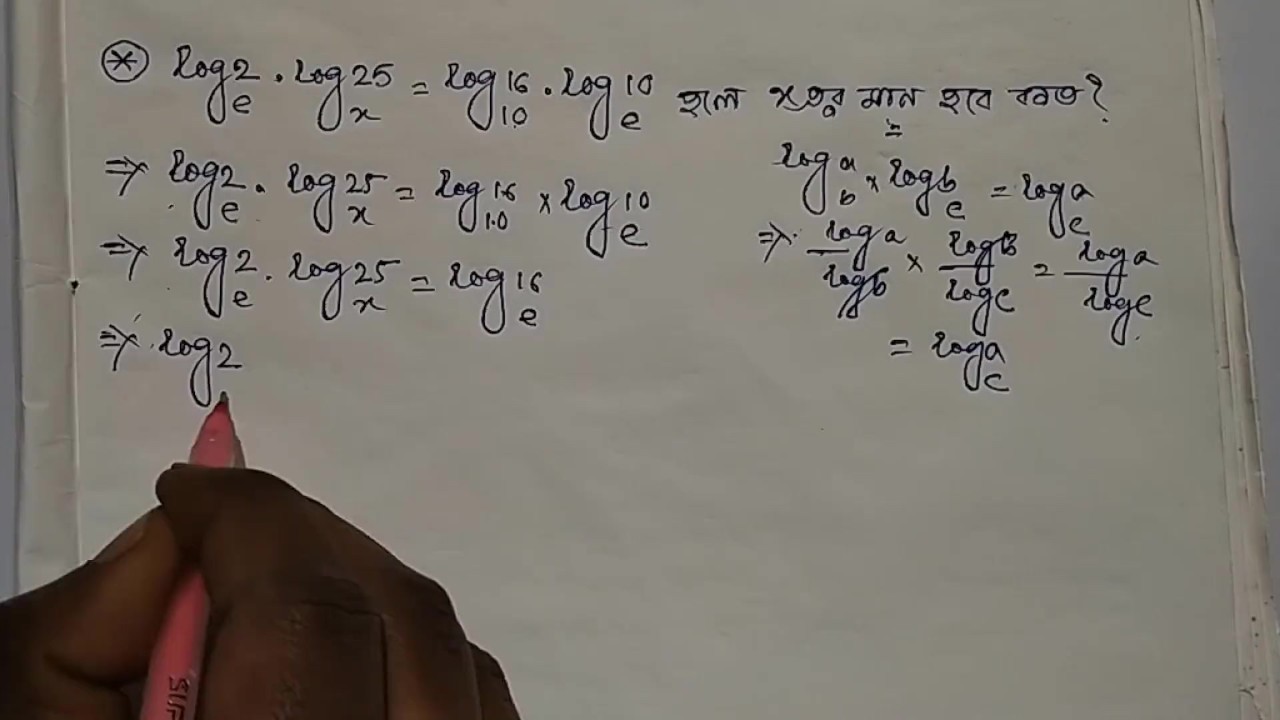 * log_e 2 . log_x 25 = log_10 16 . log_e 10 হলে x এর মান হবে কত?
⇒ log_e 2 . log_x 25 = log_10 16 × log_e 10
⇒ log_e 2 . log_x 25 = log_e 16
⇒ log 2
log_b a × log_c b = log_c a
⇒ log a / log b × log b / log c = log a / log c
= log_c a